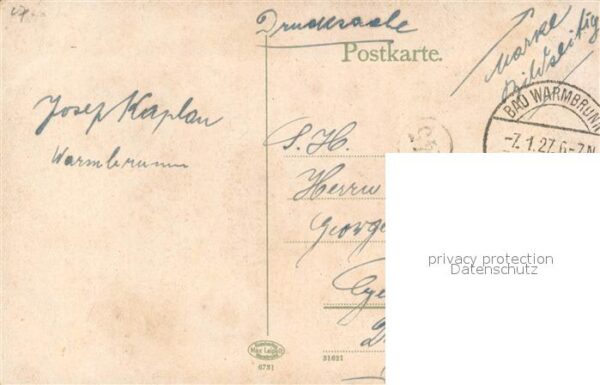 Drucksache
Postkarte.
Marke
bildseitig
BAD WARMBRUNN
-7.1.27.6-7N
Josef Kaplan
Warmbrunn
S. H.
Herrn
George
privacy protection
Datenschutz
Max Leipelt
6751
31621